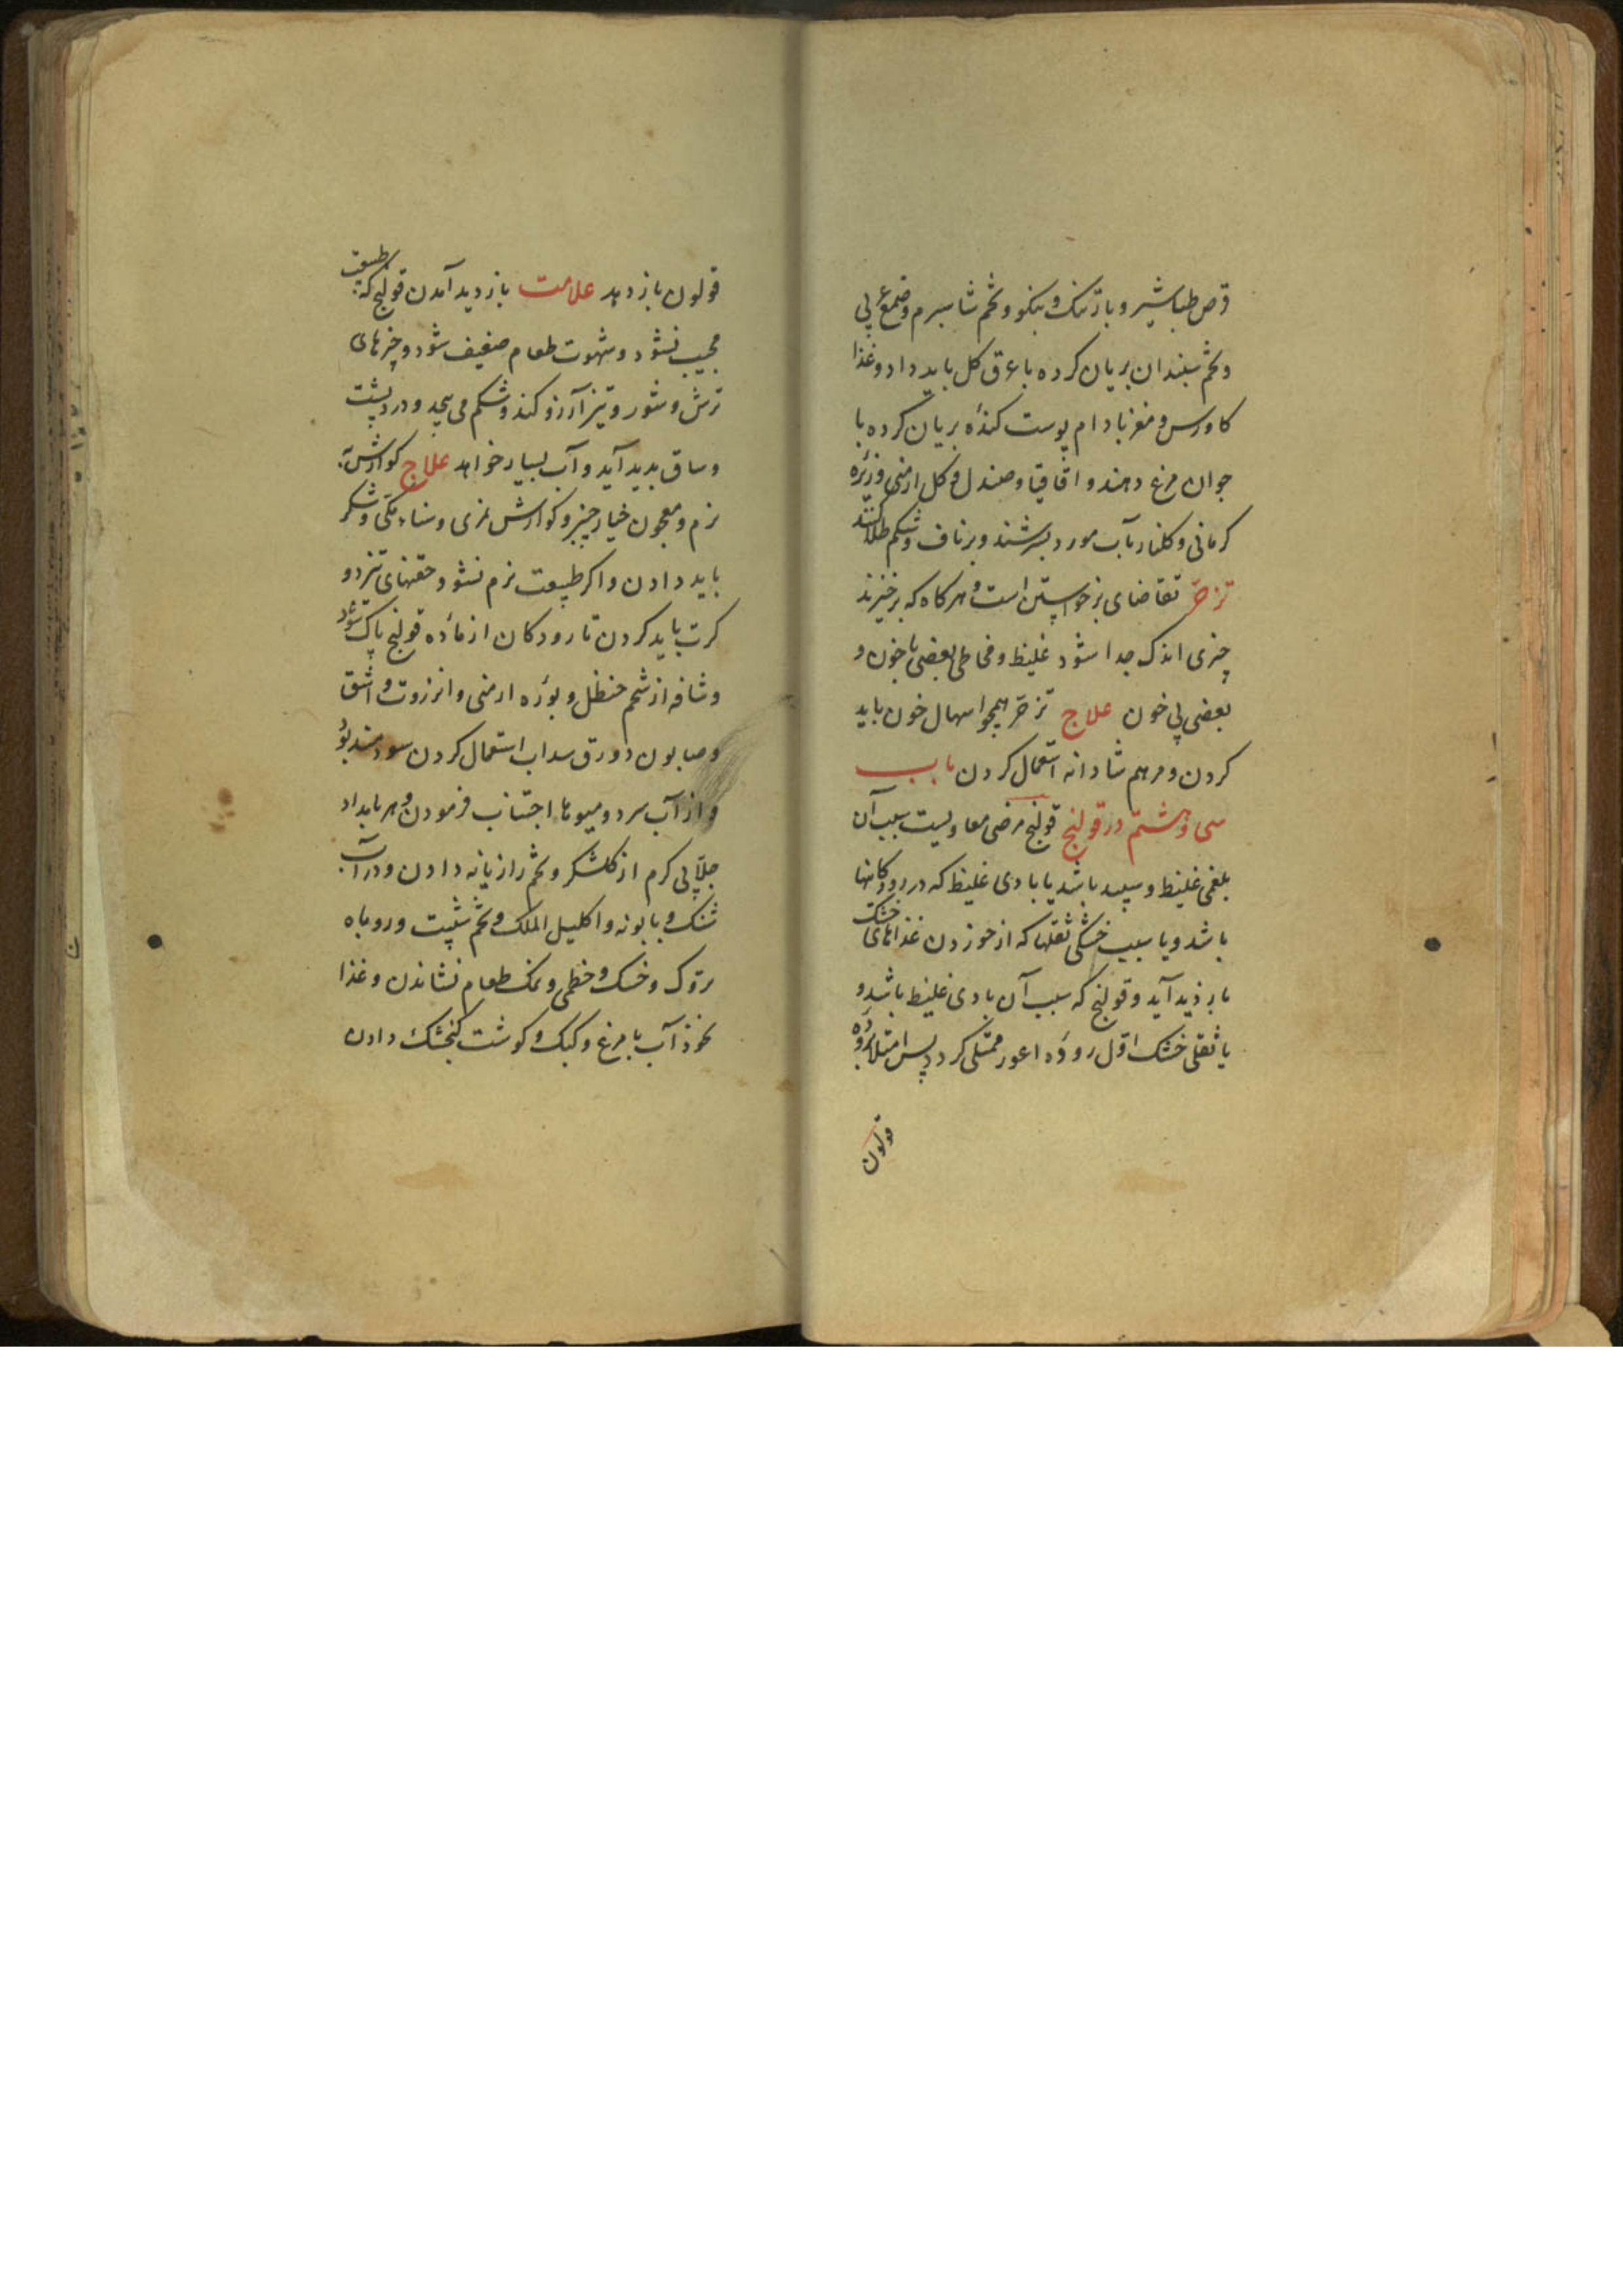 قرص طباشیر و بارتنگ و بنکو و تخم شاسپرم و صمغ عربی
و تخم سپندان بریان کرده با عرق کل باید داد و غذا
کاورس و مغز بادام پوست کنده بریان کرده با
جوان مرغ دهند و اقاقیا و صندل و کل ارمنی و زیره
کرمانی و کلنار بآب مورد بسرشند و بر ناف و شکم طلا کنند
تزحر تقاضای برخواستن است و هر کاه که برخیزند
چیزی اندک جدا شود غلیظ و مخاطی بعضی با خون و
بعضی بی خون علاج تزحر همچو اسهال خون باید
کردن و مرهم شادانه استعمال کردن باب
سی و هشتم در قولنج قولنج مرضی معاویست سبب آن
بلغمی غلیظ و سپید باشد یا بادی غلیظ که در رودکانها
باشد و یا سبب خشکی ثقلها که از خوردن غذاهای خشک
بازدید آید و قولنج که سبب آن بادی غلیظ باشد و
یا ثقلی خشک اول روده اعور ممتلی کردد پس امتلا بروده
قولون
قولون باز دهد علامت بازدید آمدن قولنج که طبیعت
مجیب نشود و شهوت طعام ضعیف شود و چیزهای
ترش و شور و تیز آرزو کند و شکم می پیچد و درد پشت
و ساق بدید آید و آب بسیار خواهد علاج کوارش
نرم و معجون خیار چنبر و کوارش تمری و سناء مکی و شکر
باید دادن و اکر طبیعت نرم نشود حقنهای تیز دو
کرت باید کردن تا رودکان از ماده قولنج پاک شود
و شافه از شحم حنظل و بوره ارمنی و انزروت و اشق
و صابون و ورق سداب استعمال کردن سودمند بود
و از آب سرد و میوها اجتناب فرمودن و هر بامداد
جلابی کرم از کلشکر و تخم رازیانه دادن و در آب
شنک و بابونه و اکلیل الملک و تخم شبت و روباه
تروک و خسک و خطمی و نمک طعام نشاندن و غذا
نخوذ آب با مرغ و کبک و کوشت کنجشک دادن